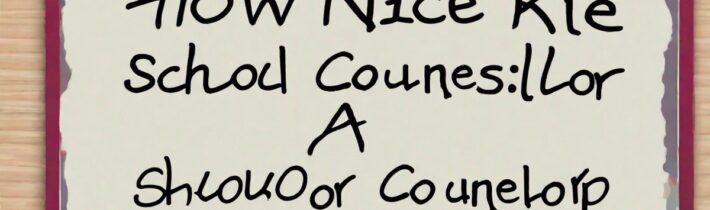 How Nice Rie
Schod Counes:llor
A
Shcouoor Counelorp